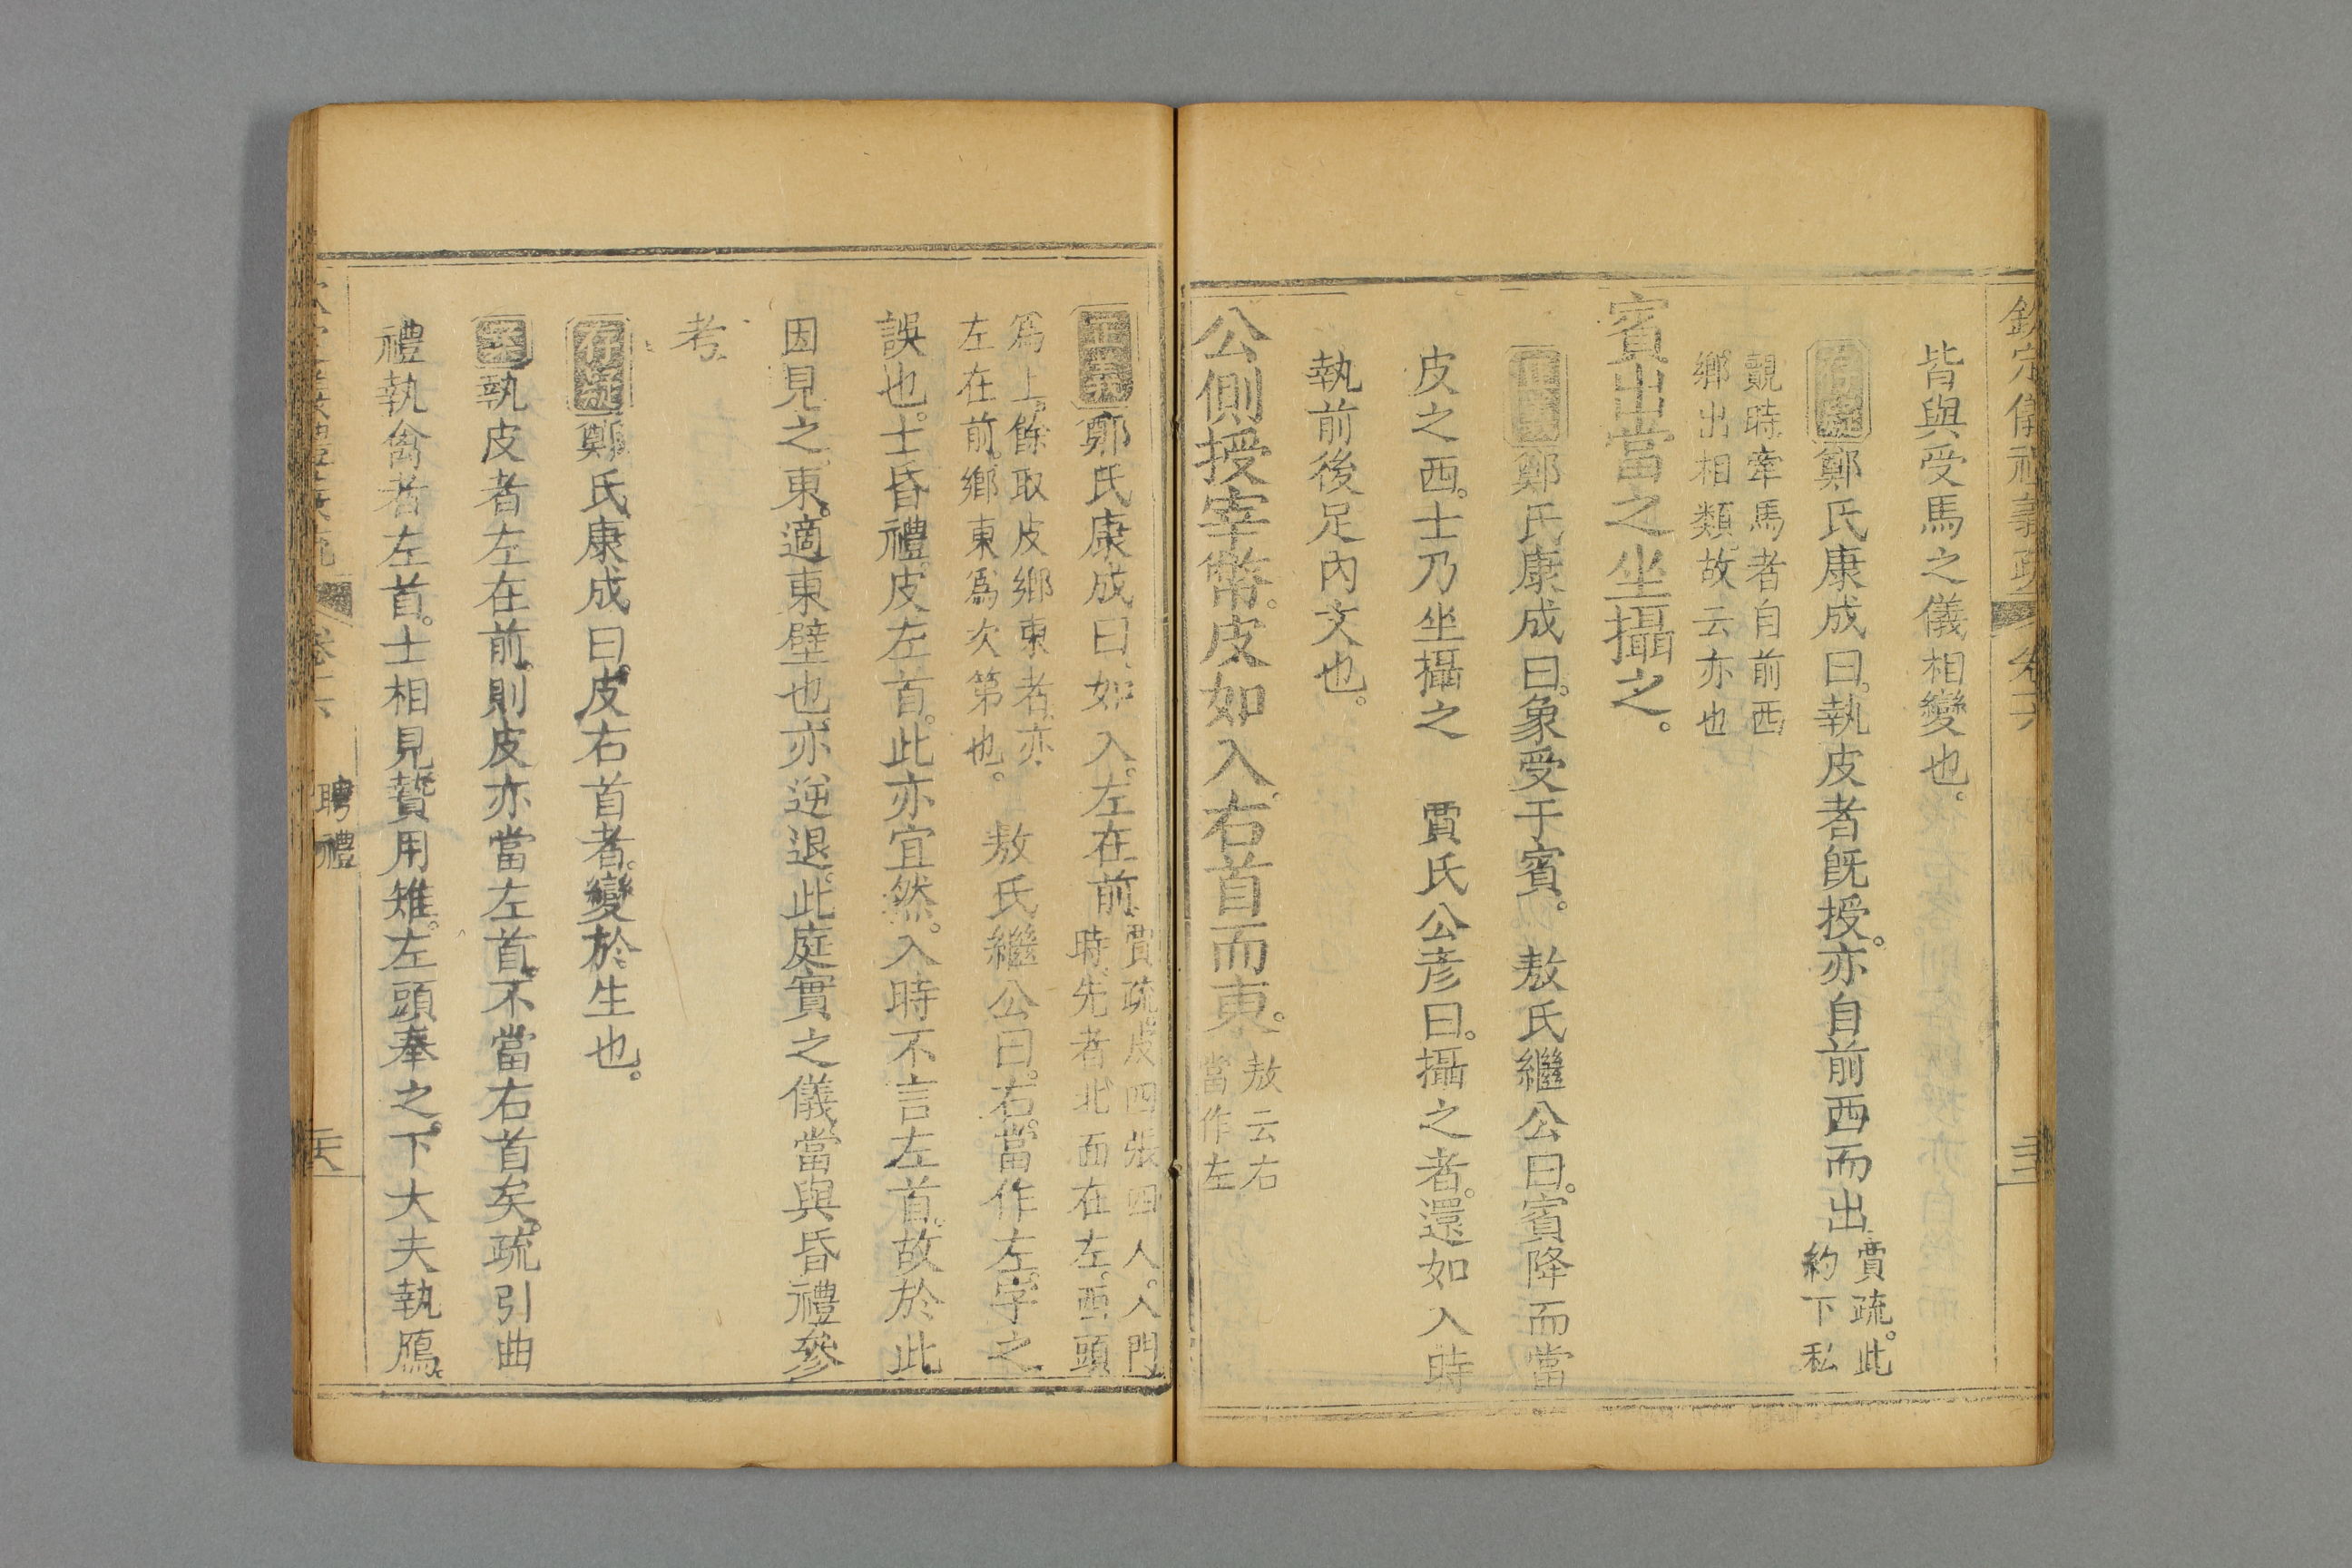 皆與受馬之儀相變也。
存疑鄭氏康成曰。執皮者旣授。亦自前西而出賈疏。此
約下私
覿時牽馬者自前西
鄉出相類。故云亦也
賓出。當之坐攝之。
正義鄭氏康成曰。象受于賓。 敖氏繼公曰。賓降而當
皮之西。士乃坐攝之 賈氏公彥曰。攝之者。還如入時
執前後足內文也。
公側授宰幣。皮如入。右首而東。敖云右
當作左
正義鄭氏康成曰。如入。左在前。賈疏。皮四張四人。入門
時。先者北面在左。西頭
爲上。餘取皮鄉東者。亦
左在前。鄉東爲次第也。 敖氏繼公曰。右。當作左。字之
誤也。士昏禮。皮左首。此亦宜然。入時不言左首。故於此
因見之。東。適東壁也。亦逆退。此庭實之儀當與昏禮參
考。
存疑鄭氏康成曰。皮右首者。變於生也。
案執皮者左在前。則皮亦當左首。不當右首矣。疏引曲
禮執禽者左首。士相見贄用雉。左頭奉之。下大夫執鴈。
聘禮